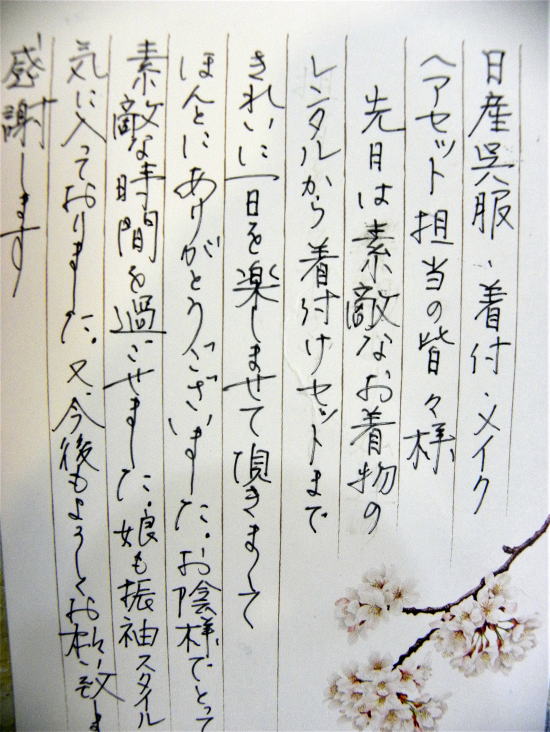 日産呉服、着付、メイク
ヘアセット担当の皆々様
先日は素敵なお着物の
レンタルから着付けセットまで
きれいに一日を楽しませて頂きまして
ほんとにありがとうございました。お陰様でとって
素敵な時間を過ごせました。娘も振袖スタイル
気に入っておりました。又、今後もよろしくお願い致しま
感謝します